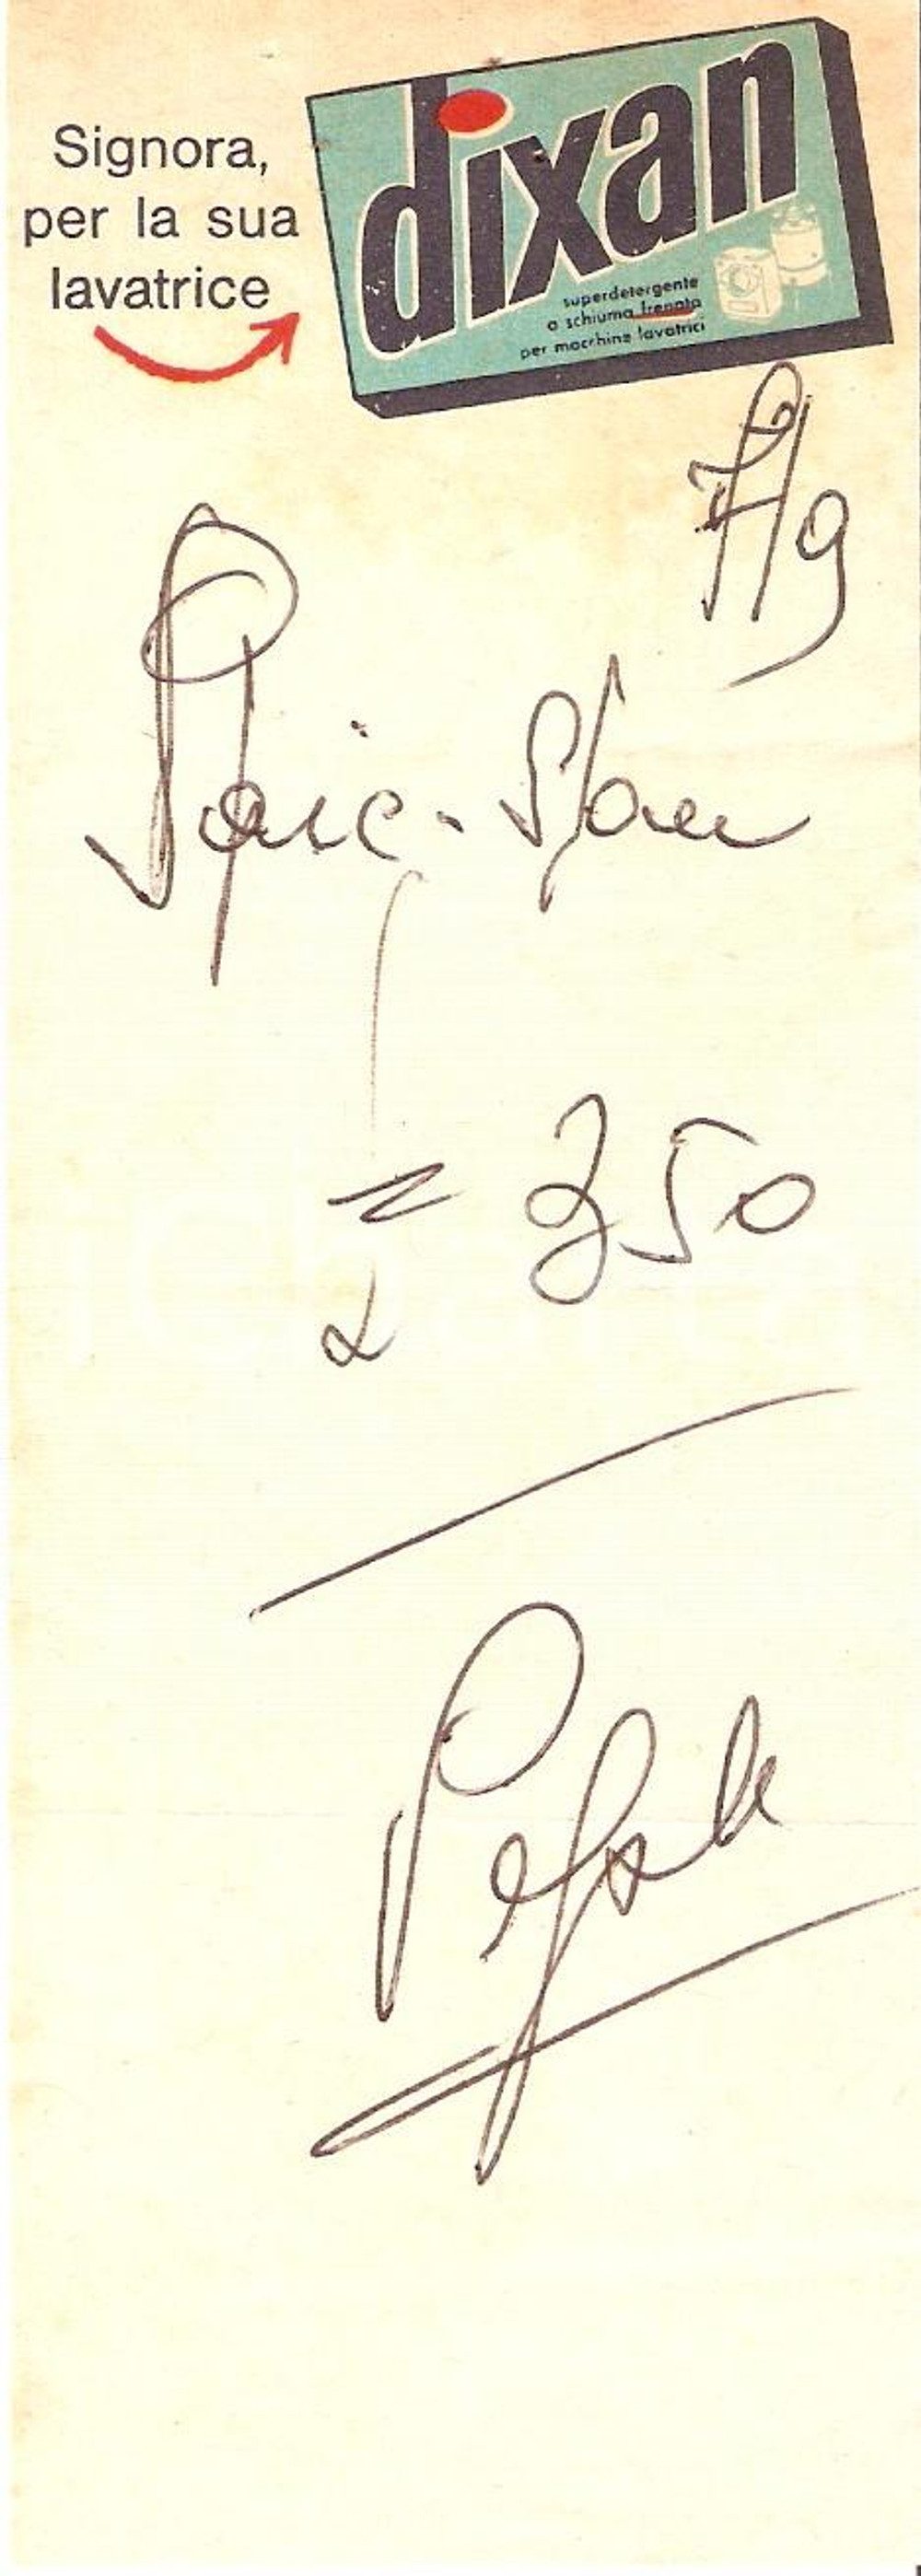 Signora,
per la sua
lavatrice
dixan
superdetergente
a schiuma frenata
per macchine lavatrici
Spic-Span
= 350